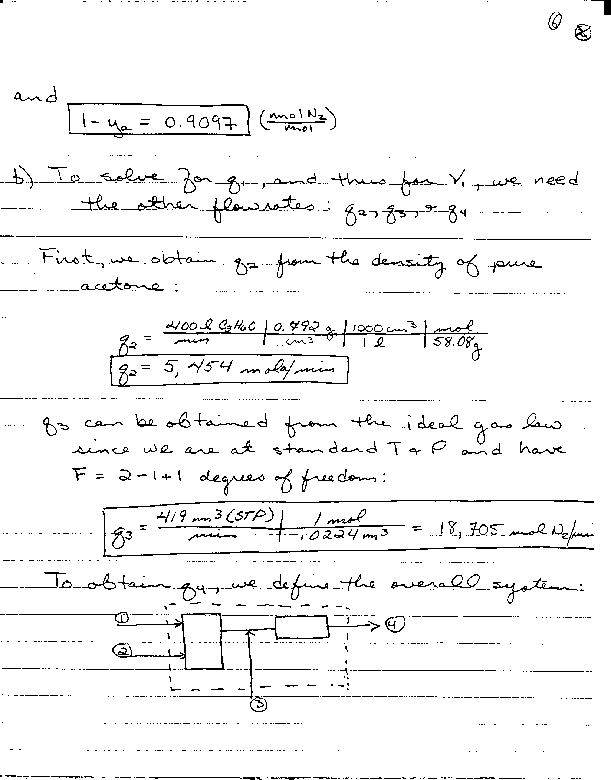 6
and
1 - ya = 0.9097 (mol N2/mol)
b.) To solve for q1, and thus for V1, we need
the other flowrates: q2, q3, & q4
First, we obtain q2 from the density of pure
acetone:
q2 = 400 l C3H6O/min | 0.792 g/cm3 | 1000 cm3/1 l | mol/58.08g
q2 = 5,454 mols/min
q3 can be obtained from the ideal gas law
since we are at standard T & P and have
F = 2-1+1 degrees of freedom:
q3 = 419 m3 (STP)/min | 1 mol/.0224 m3 = 18,705 mol N2/min
To obtain q4, we define the overall system:
1
4
2
3